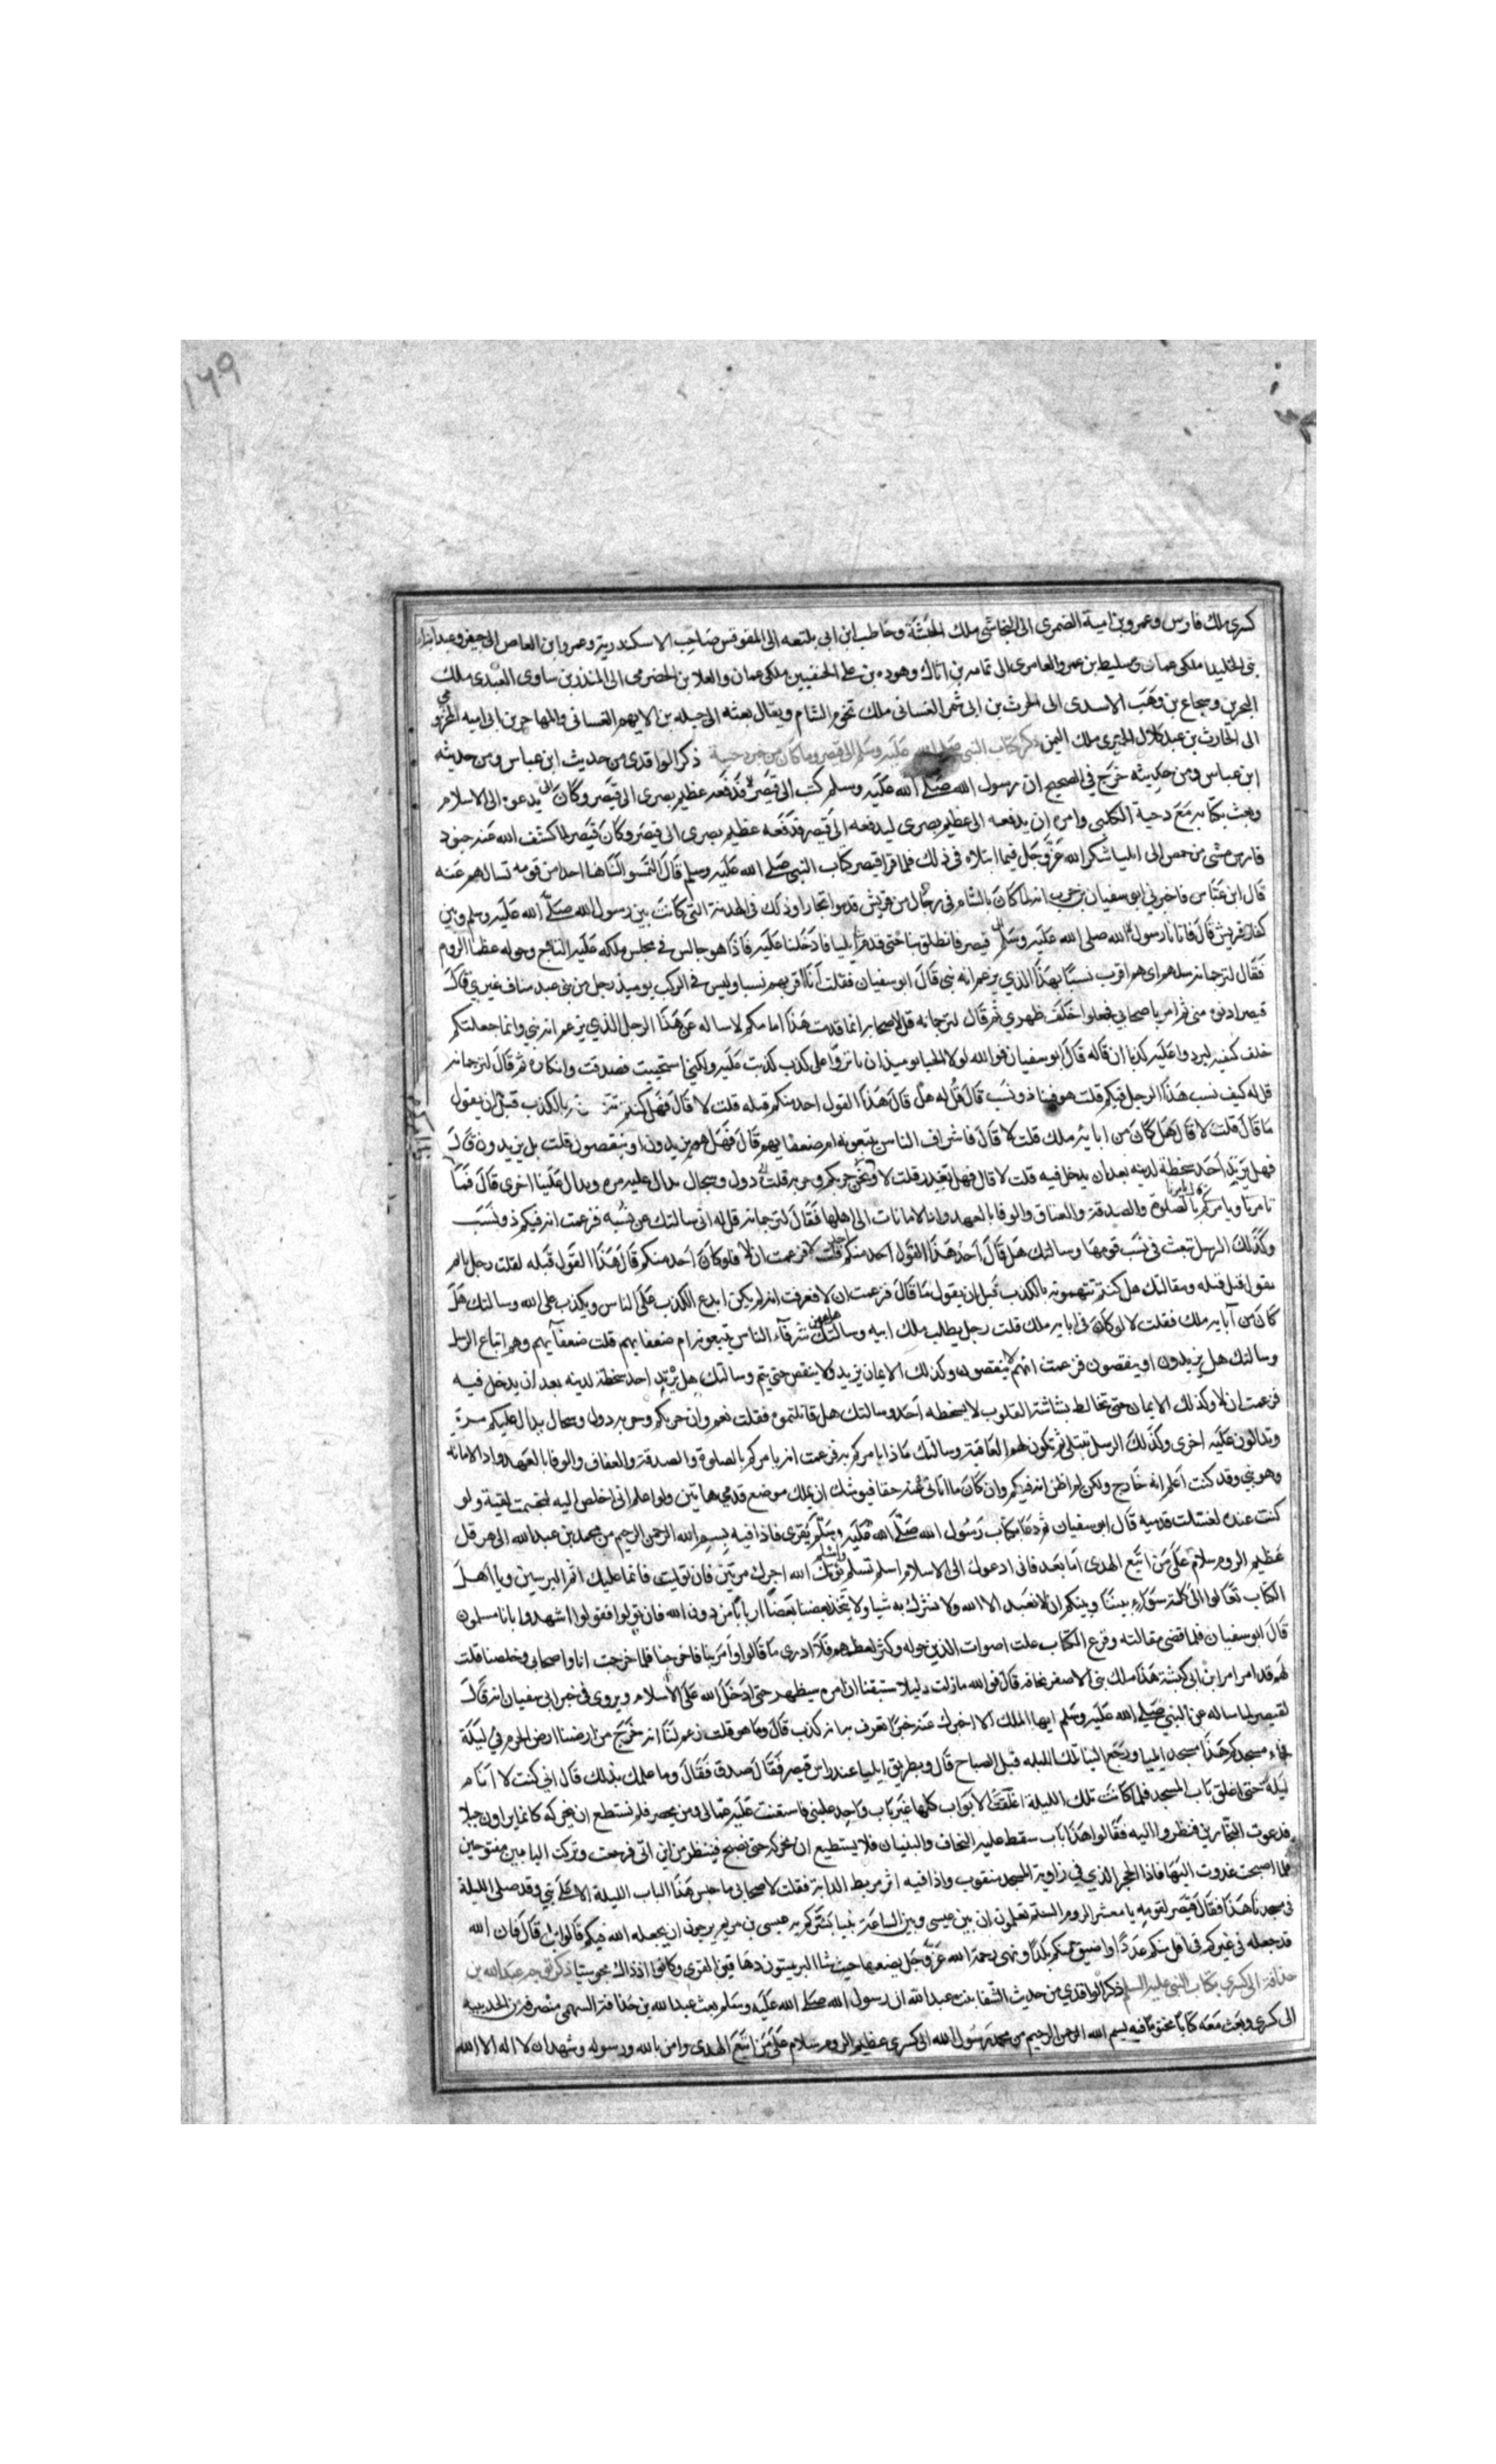 ١٦٩
كسرى ملك فارس وعمرو بن امية الضمرى الى النجاشى ملك الحبشة وحاطب ابن ابى بلتعه الى المقوقس صاحب الاسكندرية وعمرو ابن العاص الى جيفر وعبد
بنى الجلندا ملكى عمان وسليط بن عمرو العامرى الى ثمامه بن اثال وهوذه بن على الحنفيين ملكى عمان والعلا بن الحضرمى الى المنذر بن ساوى العبدى ملك
البحرين وشجاع بن وهب الاسدى الى الحرث بن ابى شمر الغسانى ملك تخوم الشام ويقال بعثه الى جبله بن الايهم الغسانى والمهاجر بن ابى اميه المخزومى
الى الحارث بن عبد كلال الحميرى ملك اليمن ذكر كتاب النبى صلى الله عليه وسلم الى قيصر وما كان من خبر دحية ذكر الواقدى من حديث ابن عباس ومن حديثه
ابن عباس ومن حديثه خرج فى الصحيح ان رسول الله صلى الله عليه وسلم كتب الى قيصر فدفعه عظيم بصرى الى قيصر وكان يدعوه الى الاسلام
وبعث بكتابه مع دحية الكلبى وامره ان يدفعه الى عظيم بصرى ليدفعه الى قيصر فدفعه عظيم بصرى الى قيصر وكان قيصر لما كشف الله عنه جنود
فارس مشى من حمص الى ايليا شكر الله عز وجل فيما ابتلاه فى ذلك فلما قرا قيصر كتاب النبى صلى الله عليه وسلم قال التمسوا لنا هاهنا احدا من قومه نسالهم عنه
قال ابن عباس فاخبرنى ابو سفيان بن حرب انه لما كان بالشام فى رجال من قريش قدموا تجارا وذلك فى الهدنة التى كانت بين رسول الله صلى الله عليه وسلم وبين
كفار قريش قال فاتانا رسول الله صلى الله عليه وسلم قيصر فانطلق بنا حتى قدم ايليا فادخلنا عليه فاذا هو جالس فى مجلس ملكه عليه التاج وحوله عظما الروم
فقال لترجمانه سلهم اى هم اقرب نسبًا بهذا الذي يزعم انه نبى قال ابو سفيان فقلت انا اقربهم نسبا وليس فى الركب يوميذ رجل من بنى عبد مناف غيرى قال
قيصر ادنوه منى ثم امر باصحابى فجعلوا خلف ظهرى ثم قال لترجمانه قل لاصحابه انما قدمت هذا امامكم لاساله عن هذا الرجل الذي يزعم انه نبي وانما جعلتكم
خلف كتفيه ليردوا عليه كذبا ان قاله قال ابو سفيان فوالله لولا الحيا يوميذ ان ياثروا على كذب كذبت عليه ولكنى استحييت فصدقت وانكاره ثم قال لترجمانه
قل له كيف نسب هذا الرجل فيكم قلت هو فينا ذو نسب قال قل له هل قال هذا القول احد منكم قبله قلت لا قال فهل كنتم بالكذب قبل ان يقول
ما قال قلت لا قال هل كان من ابايه ملك قلت لا قال فاشراف الناس يتبعونه ام ضعفايهم قال فهل هم يزيدون او ينقصون قلت بل يزيدون قال
فهل يرتد احد سخطة لدينه بعد ان يدخل فيه قلت لا قال فهل يغدر قلت لا ونحن حربكم وحربه قلت دول وسجال يدال عليه مره ويدال علينا اخرى قال فما
تامرنا ويامركم بالصلوة والصدقة والعفاف والوفا بالعهد وادا الامانات الى اهلها فقال لترجمانه قل له انى سالتك عن نسبه فزعمت انه فيكم ذو نسب
وكذلك الرسل تبعث فى نسب قومها وسالتك هل قال احد هذا القول احد منكم قبله فزعمت ان لا فلو كان احد منكم قال هذا القول قبله لقلت رجل ياتم
بقول قبل قبله وسالتك هل كنتم تتهمونه بالكذب قبل ان يقول ما قال فزعمت ان لا فعرفت انه لم يكن ليدع الكذب على الناس ويكذب على الله وسالتك هل
كان من آبايه ملك فقلت لا لو كان فى ابايه ملك قلت رجل يطلب ملك ابيه وسالتك شرفآء الناس يتبعونه ام ضعفايهم قلت ضعفآيهم وهم اتباع الرسل
وسالتك هل يزيدون او ينقصون فزعمت انهم لا ينقصون وكذلك الايمان يزيد ولا ينقص حتى يتم وسالتك هل يرتد احد سخطة لدينه بعد ان يدخل فيه
فزعمت ان لا وكذلك الايمان حتى تخالط بشاشته القلوب لا يسخطه احد وسالتك هل قاتلتموه فقلت نعم وان حربكم وحربه دول وسجال يدال عليكم مرة
وتدالون عليه اخرى وكذلك الرسل تبتلى ثم تكون لهم العاقبة وسالتك ماذا يامركم به فزعمت انه يامركم بالصلوة والصدقة والعفاف والوفا بالعهد وادا الامانه
وهو نبي وقد كنت اعلم انه خارج ولكن لم اظن انه فيكم وان كان ما اتانى عنه حقا فيوشك ان يملك موضع قدمي هاتين ولو اعلم انى اخلص اليه لتجشمت لقيه ولو
كنت عنده لغسلت قدميه قال ابو سفيان ثم دعا بكتاب رسول الله صلى الله عليه وسلم يقرى فاذا فيه بسم الله الرحمن الرحيم من محمد بن عبد الله الى هرقل
عظيم الروم سلام على من اتبع الهدى اما بعد فانى ادعوك الى الاسلام اسلم تسلم يوتك الله اجرك مرتين فان توليت فانما عليك اثم اليريسين ويا اهل
الكتاب تعالوا الى كلمة سوآء بيننا وبينكم ان لا نعبد الا الله ولا نشرك به شيا ولا يتخذ بعضنا بعضًا اربابًا من دون الله فان تولوا فقولوا اشهدوا بانا مسلمون
قال ابو سفيان فلما قضى مقالته وفرغ الكتاب علت اصوات الذين حوله وكثر لغطهم فلا ادرى ما قالوا وامر بنا فاخرجنا فلما خرجت انا واصحابى وخلصنا قلت
لهم قد امر امر ابن ابى كبشة هذا ملك بنى الاصفر يخافه قال فوالله مازلت ذليلا مستيقنا ان امره سيظهر حتى ادخل الله على الاسلام ويروى فى خبر ابى سفيان انه قال
لقيصر لما ساله عن النبي صلى الله عليه وسلم ايها الملك الا اخبرك عنه خبرًا تعرف به انه كذب قال وما هو قلت زعم لنا انه خرج من ارضنا ارض الحرم في ليلة
فجاء مسجدكم هذا مسجد ايليا ورجع الينا تلك الليله قبل الصباح قال وبطريق ايليا عند راس قيصر فقال صدق فقال وما علمك بذلك قال انى كنت لا انام
ليلة حتى اغلق باب المسجد فلما كانت تلك الليلة اغلقت الابواب كلها غير باب واحد غلبنى فاستعنت عليه عمالى ومن يحضر فلم نستطع ان نحركه كانما نزاول جبلا
فدعوت النجارين فنظروا اليه فقالوا هذا باب سقط عليه النجاف والبنيان فلا يستطيع ان نحركه حتى نصبح فننظر من اين اتى فرجعت وتركت البابين مفتوحين
فلما اصبحت غدوت اليها فاذا الحجر الذي في زاوية المسجد مثقوب واذا فيه اثر مربط الدابة فقلت لاصحابى ما حبس هذا الباب الليلة الا على نبي وقد صلى الليلة
فى مسجدنا هذا فقال قيصر لقومه يا معشر الروم الستم تعلمون ان بين عيسى وبين الساعة نبيا بشركم به عيسى بن مريم يرجون ان يجعله الله فيكم قالوا بلى قال فان الله
قد جعله فى غيركم فى اقل منكم عددًا واضيق منكم بلدًا وهى رحمة الله عز وجل يضعها حيث شا اليريسيون دهاقين القرى وكانوا اذ ذاك مجوسا ذكر توجه عبد الله بن
حذافة الى كسرى بكتاب النبى عليه السلم ذكر الواقدي من حديث الشفا بنت عبد الله ان رسول الله صلى الله عليه وسلم بعث عبد الله بن حذافة السهمى منصرفه من الحديبيه
الى كسرى وبعث معه كتابًا مختومًا فيه بسم الله الرحمن الرحيم من محمد رسول الله الى كسرى عظيم الروم سلام على من اتبع الهدى وامن بالله ورسوله وشهد ان لا اله الا الله